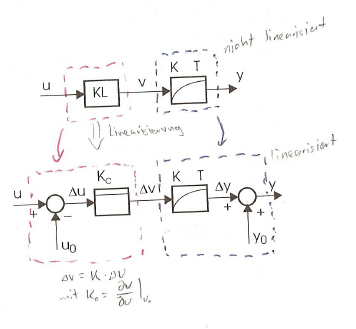 nicht linearisiert
K T
u KL v y
Linearisierung
linearisiert
u Δu K_C Δv K T Δy y
+ − + +
u₀ y₀
Δv = K · Δu
mit K₀ = ∂v/∂u |u₀